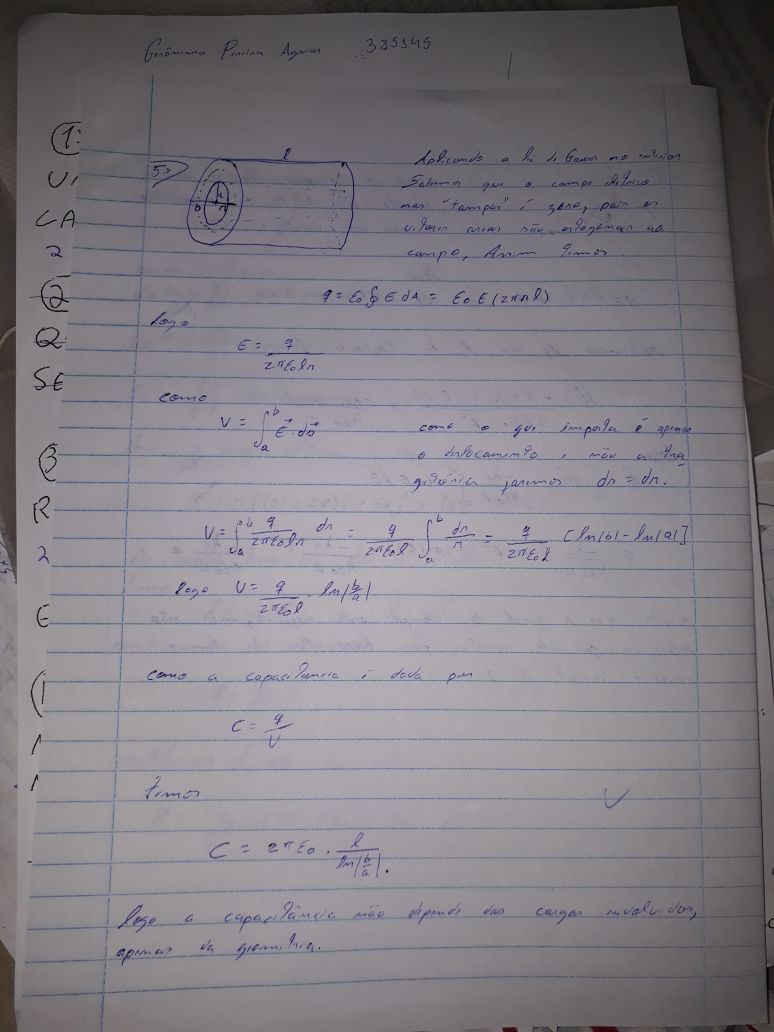 Gerônimo Pereira Aguiar 385345
1
U
CA
2
2
Q
SE
3
R
2
E
5)
l
b
a
r
Aplicando a lei de Gauss no interior
Sabemos que o campo elétrico
nas "tampas" é zero, pois os
vetores areas são ortogonais ao
campo, Assim temos.
q = ε₀ ∮ E dA = ε₀ E (2πrl)
Logo
E = q / 2πε₀lr
como
V = ∫ₐᵇ E⃗ · ds⃗
como o que importa é apenas
o deslocamento e não a tra
getória faremos ds = dr.
V = ∫ₐᵇ q / 2πε₀lr dr = q / 2πε₀l ∫ₐᵇ dr / r = q / 2πε₀l [ln|b| - ln|a|]
logo V = q / 2πε₀l . ln|b/a|
como a capacitância é dada por
C = q / V
temos
C = 2πε₀ . l / ln|b/a|.
Logo a capacitância não depende das cargas envolvidas,
apenas da geometria.